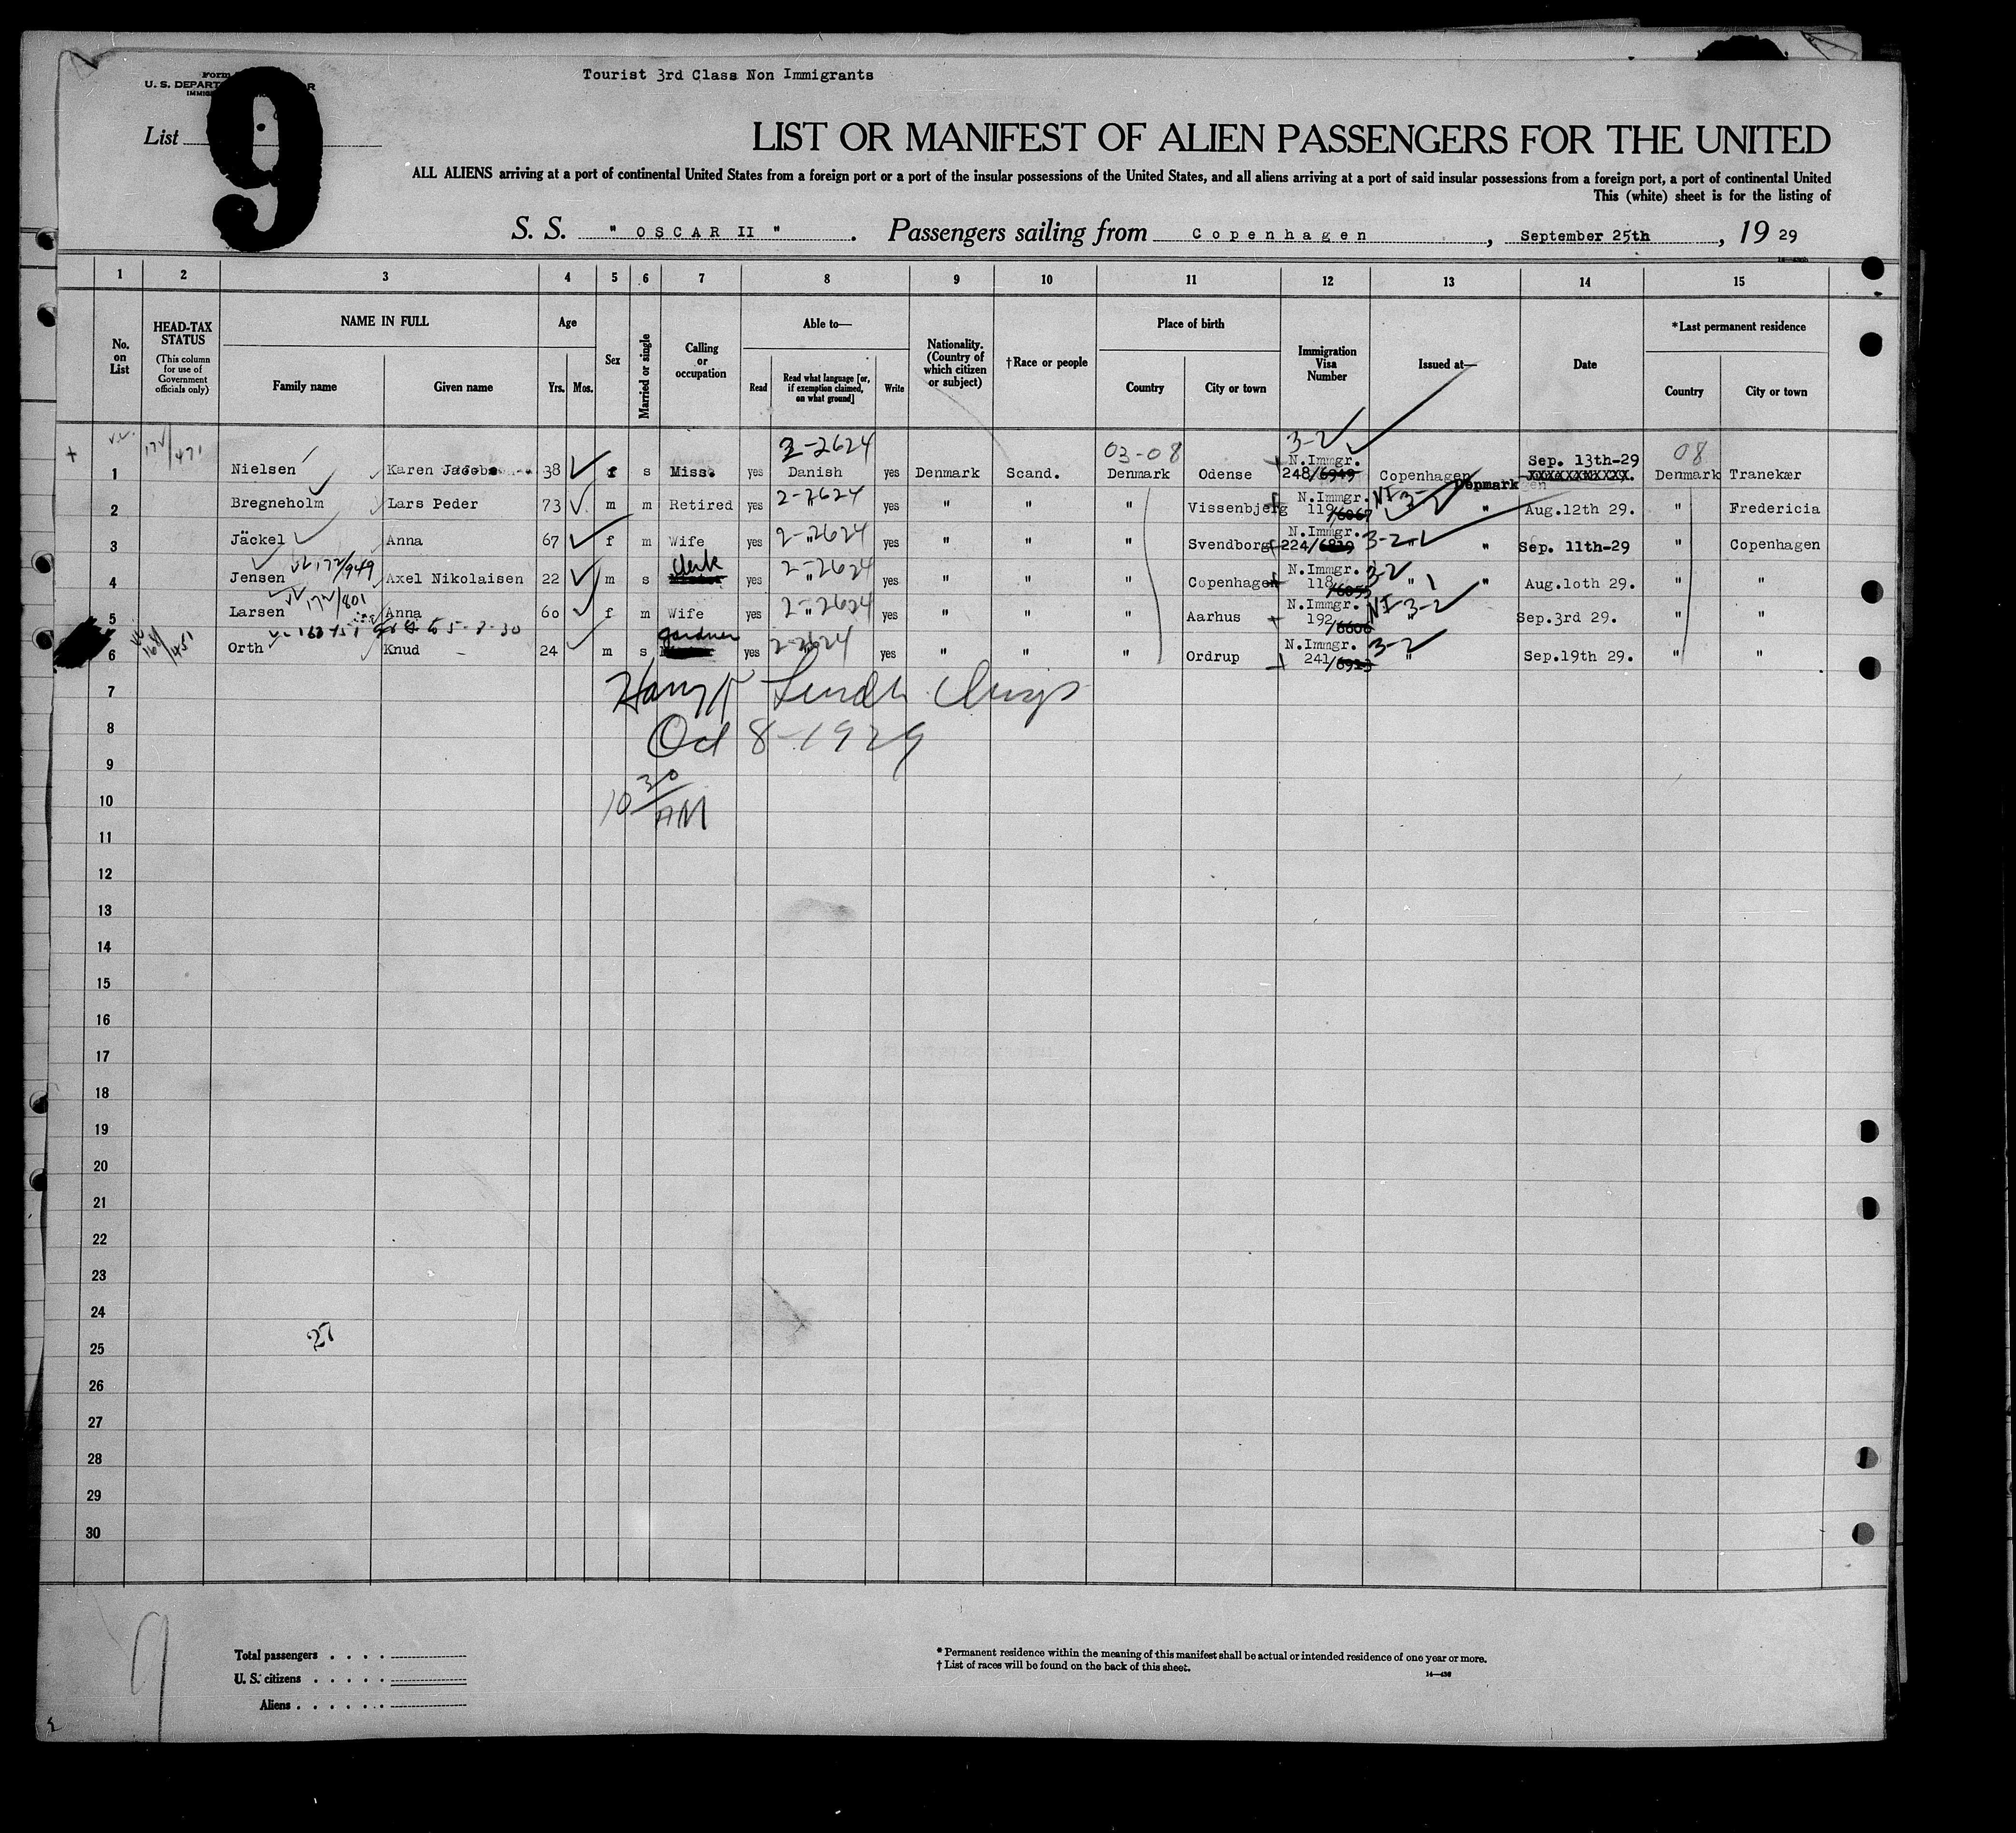 Tourist 3rd Class Non Immigrants
Form
U. S. DEPART
List
9
LIST OR MANIFEST OF ALIEN PASSENGERS FOR THE UNITED
ALL ALIENS arriving at a port of continental United States from a foreign port or a port of the insular possessions of the United States, and all aliens arriving at a port of said insular possessions from a foreign port, a port of continental United
This (white) sheet is for the listing of
S. S. " OSCAR II " . Passengers sailing from Copenhagen , September 25th , 19 29
1 2 3 4 5 6 7 8 9 10 11 12 13 14 15
No. on List
HEAD-TAX STATUS
(This column for use of Government officials only)
NAME IN FULL
Family name Given name
Age
Yrs. Mos.
Sex
Married or single
Calling or occupation
Able to—
Read
Read what language [or, if exemption claimed, on what ground]
Write
Nationality. (Country of which citizen or subject)
†Race or people
Place of birth
Country City or town
Immigration Visa Number
Issued at—
Date
*Last permanent residence
Country City or town
172/471 2-2624 03-08 3-2 08
1 Nielsen Karen 38 f s Miss. yes Danish yes Denmark Scand. Denmark Odense N.Immgr. 248/6949 Copenhagen Denmark Sep. 13th-29 Denmark Tranekær
2 Bregneholm Lars Peder 73 m m Retired yes 2-2624 " yes " " " Vissenbjerg N.Immgr. 119/6067 NI 3-2 " Aug.12th 29. " Fredericia
3 Jäckel Anna 67 f m Wife yes 2-2624 " yes " " " Svendborg N.Immgr. 224/6819 3-2 " " Sep. 11th-29 " Copenhagen
172/949
4 Jensen Axel Nikolaisen 22 m s Clerk yes 2-2624 " yes " " " Copenhagen N.Immgr. 118/6055 3-2 " " Aug.10th 29. " "
172/801
5 Larsen Anna 60 f m Wife yes 2-2624 " yes " " " Aarhus N.Immgr. 192/6606 NI 3-2 " Sep.3rd 29. " "
164/451
6 Orth Knud 24 m s gardner yes 2-2624 yes " " " Ordrup N.Immgr. 241/6913 3-2 " Sep.19th 29. " "
7
8 Oct 8-1929
9
10 10 30 AM
11
12
13
14
15
16
17
18
19
20
21
22
23
24
27
25
26
27
28
29
30
Total passengers . . . .
U. S. citizens . . . . .
Aliens . . . . . .
* Permanent residence within the meaning of this manifest shall be actual or intended residence of one year or more.
† List of races will be found on the back of this sheet.